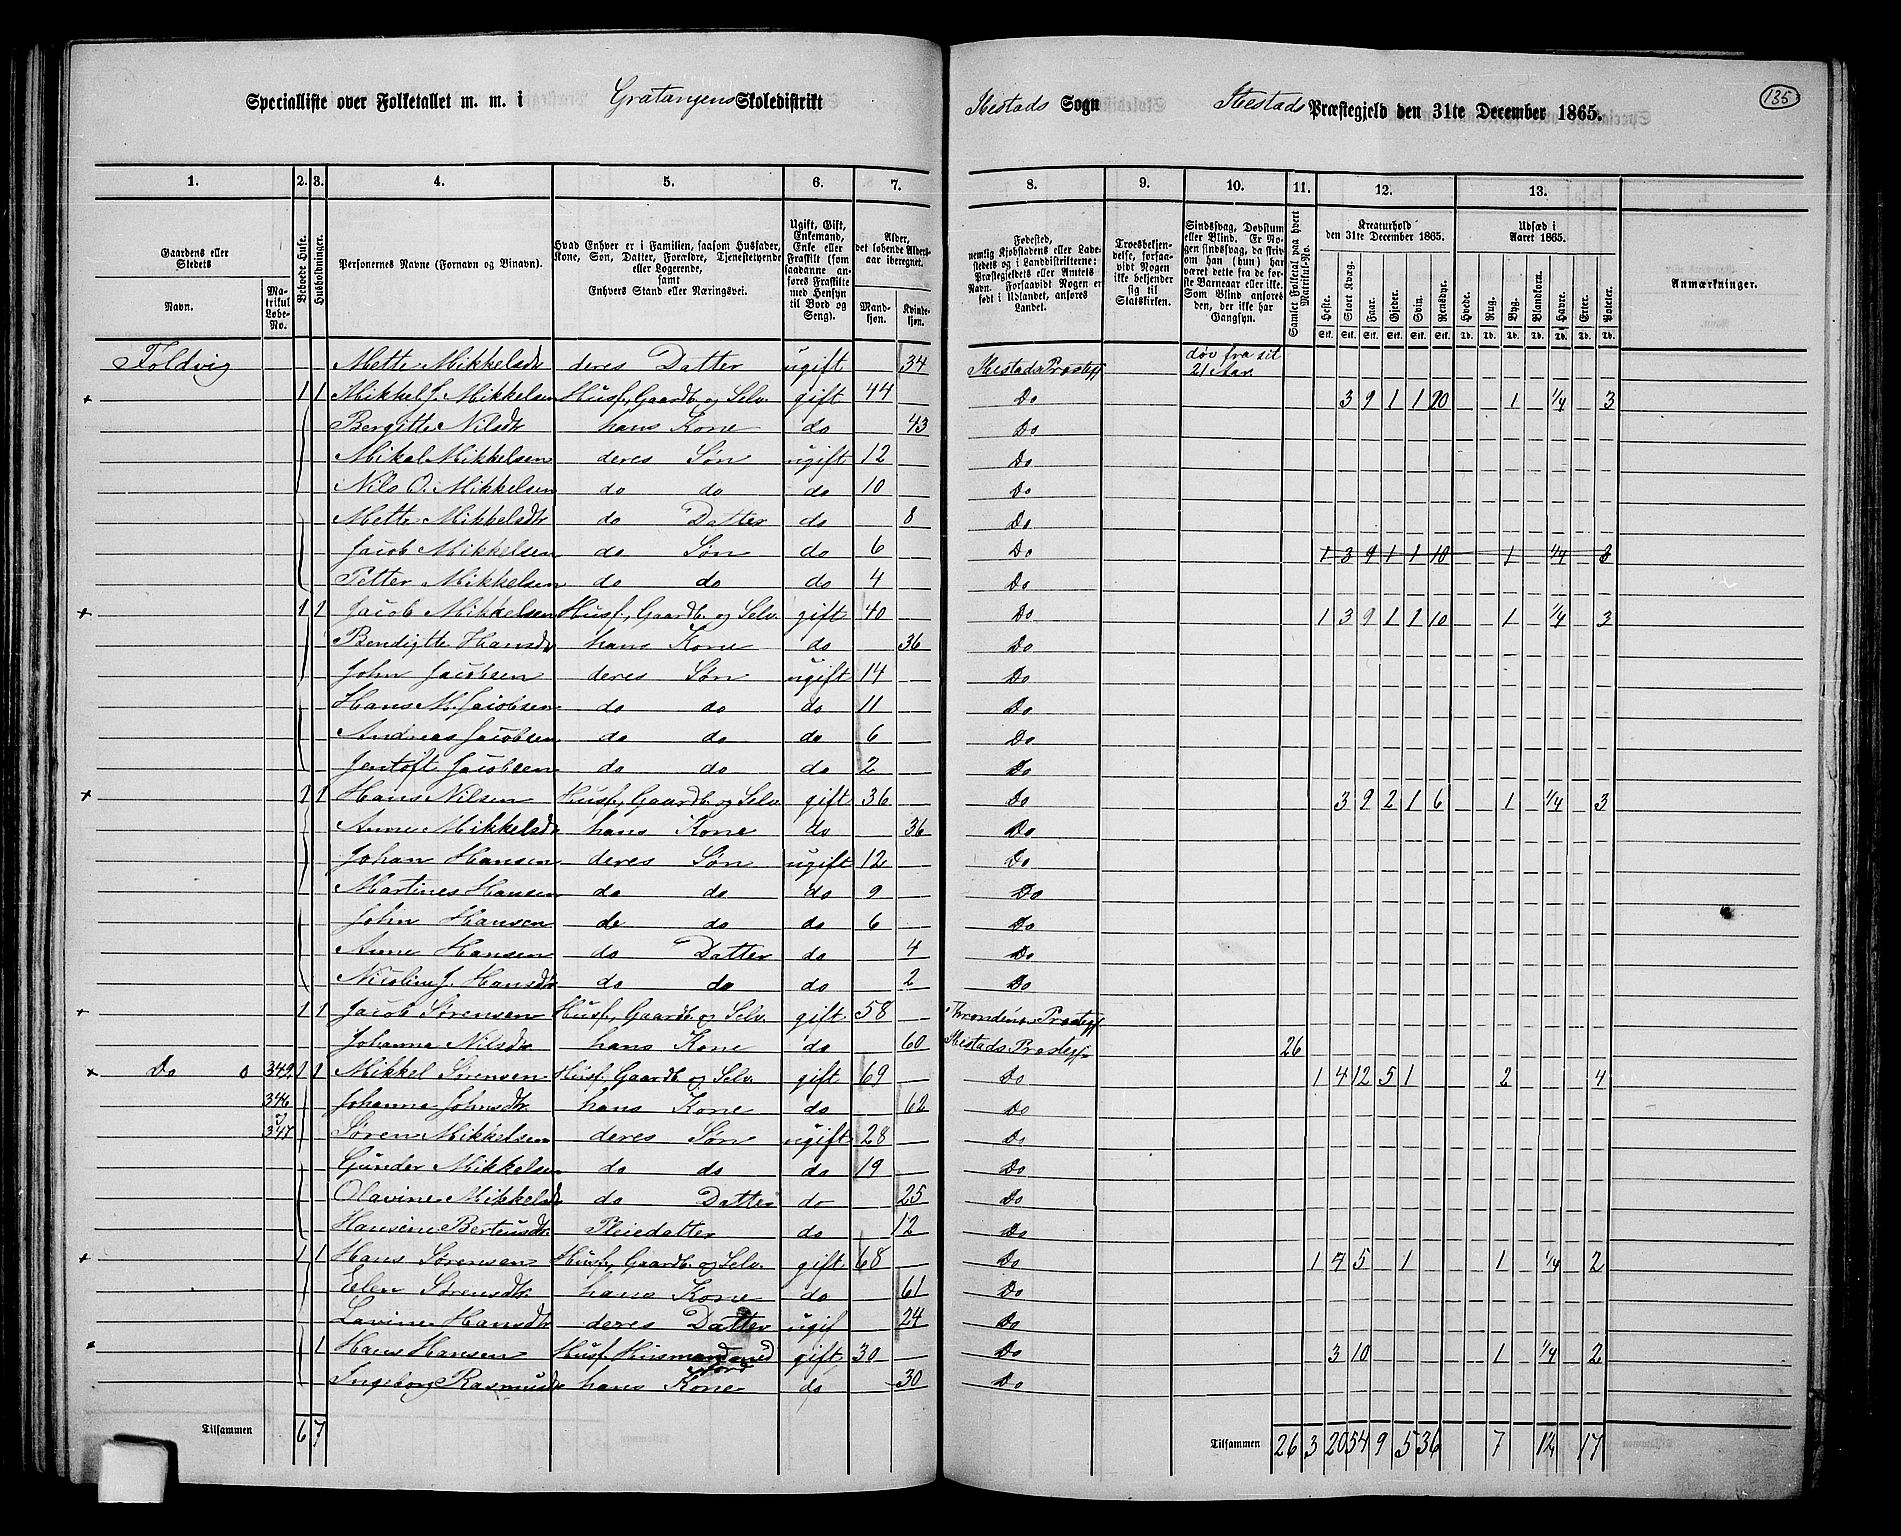 Specialliste over Folketallet m. m. i Gratangens Skoledistrikt Ibestads Sogn Ibestads Præstegjeld den 31te December 1865. 135
1. 2. 3. 4. 5. 6. 7. 8. 9. 10. 11. 12. 13.
Gaardens eller Stedets
Navn.
Matrikul Løbe-No.
Beboede Huse.
Husholdninger.
Personernes Navne (Fornavn og Binavn).
Hvad Enhver er i Familien, saasom Husfader, Kone, Søn, Datter, Forældre, Tjenestetyende eller Logerende, samt Enhvers Stand eller Næringsvei.
Ugift, Gift, Enkemand, Enke eller Fraskilt (som saadanne anføres Fraskilte med Hensyn til Bord og Seng).
Alder, det løbende Aldersaar iberegnet.
Mandkjøn. Kvindekjøn.
Fødested, nemlig Kjøbstadens eller Ladestedets og i Landdistrikterne: Præstegjeldets eller Amtets Navn. Forsaavidt Nogen er født i Udlandet, anføres Landet.
Troesbekjendelse, forsaavidt Nogen ikke bekjender sig til Statskirken.
Sindssvag, Døvstum eller Blind. Er Nogen sindssvag, da skrives om han (hun) har været dette fra de første Barneaar eller ikke. Som Blind anføres den, der ikke har Gangsyn.
Samlet Folketal paa hvert Matrikul-No.
Kreaturhold den 31te December 1865.
Heste. Stort Kvæg. Faar. Gjeder. Svin. Rensdyr.
Udsæd i Aaret 1865.
Hvede. Rug. Byg. Blandkorn. Havre. Erter. Poteter.
Anmærkninger.
Foldvig Mette Mikkelsdr deres Datter ugift 34 Ibestads Præstegj døv fra sit 21 Aar
+ 1 1 Mikkel J. Mikkelsen Husf, Gaardb. og Selv. gift 44 Do 3 9 1 1 20 1 1/4 3
Bergitte Nilsdr hans Kone do 43 Do
Mikal Mikkelsen deres Søn ugift 12 Do
Nils O. Mikkelsen do do do 10 Do
Mette Mikkelsdtr do Datter do 8 Do
Jacob Mikkelsen do Søn do 6 Do 1 3 9 1 1 10 1 1/4 3
Petter Mikkelsen do do do 4 Do
+ 1 1 Jacob Mikkelsen Husf, Gaardb. og Selv. gift 40 Do 1 3 9 1 1 10 1 1/4 3
Bendigtte Hansdr hans Kone do 36 Do
John Jacobsen deres Søn ugift 14 Do
Hans M. Jacobsen do do do 11 Do
Andreas Jacobsen do do do 6 Do
Jentoft Jacobsen do do do 2 Do
+ 1 1 Hans Nilsen Husf, Gaardb. og Selv. gift 36 Do 3 9 2 1 6 1 1/4 3
Anne Mikkelsdr hans Kone do 36 Do
Johan Hansen deres Søn ugift 12 Do
Martines Hansen do do do 9 Do
John Hansen do do do 6 Do
Anne Hansen do Datter do 4 Do
Nicoline J. Hansdr do do do 2 Do
+ 1 1 Jacob Sørensen Husf, Gaardb. og Selv. gift 58 Throndenes Præstegj
Johanna Nilsdr hans Kone do 60 Ibestads Præstegj 26
+ Do o 349, 1 1 Mikkel Sørensen Husf, Gaardb. og Selv. gift 69 Do 1 4 12 5 1 2 4
346 Johanna Johnsdtr hans Kone do 62 Do
347 Søren Mikkelsen deres Søn ugift 28 Do
Gunder Mikkelsen do do do 19 Do
Olavine Mikkelsdr do Datter do 25 Do
Hansine Berteusdtr. Pleiedatter do 12 Do
+ 1 1 Hans Sørensen Husf, Gaardb. og Selv. gift 68 Do 1 4 5 1 1 1/4 2
Elen Sørensdtr. hans Kone do 61 Do
Lavine Hansdtr deres Datter ugif 24 Do
1 Hans Hansen Husf. Husmand med Jord gift 30 Do 3 10 1 1/4 2
Ingeborg Rasmusdr hans Kone do 30 Do
Tilsammen 6 7 Tilsammen 26 3 20 54 9 5 36 7 1 1/4 17